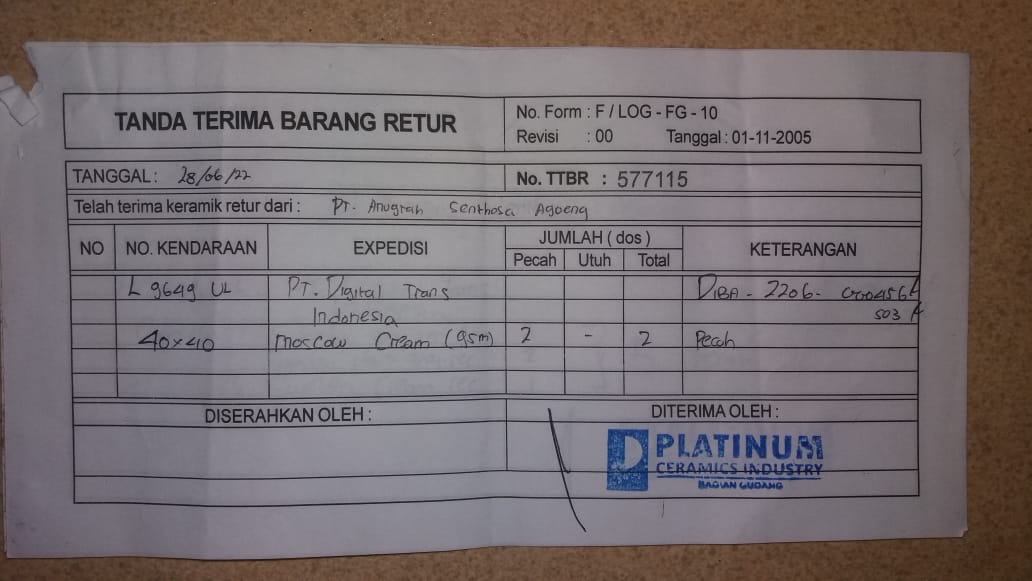 TANDA TERIMA BARANG RETUR
No. Form : F / LOG - FG - 10
Revisi : 00 Tanggal : 01-11-2005
TANGGAL : 28/06/22
No. TTBR : 577115
Telah terima keramik retur dari : PT. Anugrah Senthosa Agoeng
NO NO. KENDARAAN EXPEDISI JUMLAH ( dos ) KETERANGAN
Pecah Utuh Total
L 9649 UL PT. Digital Trans DIBA - 2206 -
Indonesia 503 A
40x40 moscow Cream (gsm) 2 - 2 Pecah
DISERAHKAN OLEH : DITERIMA OLEH :
PLATINUM
CERAMICS INDUSTRY
BAGIAN GUDANG